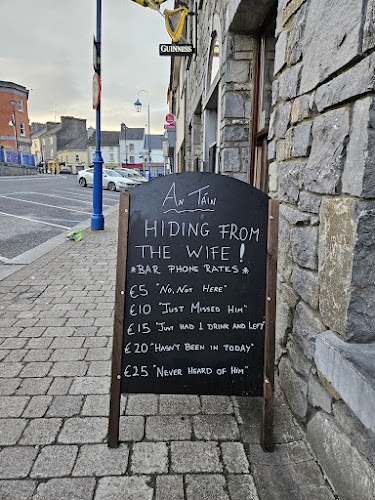 GUINNESS
An Táin
HIDING FROM
THE WIFE!
*BAR PHONE RATES*
€5 "No, Not Here"
€10 "Just Missed Him"
€15 "Just had 1 Drink and Left"
€20 "Hasn't Been in Today"
€25 "Never Heard of Him"